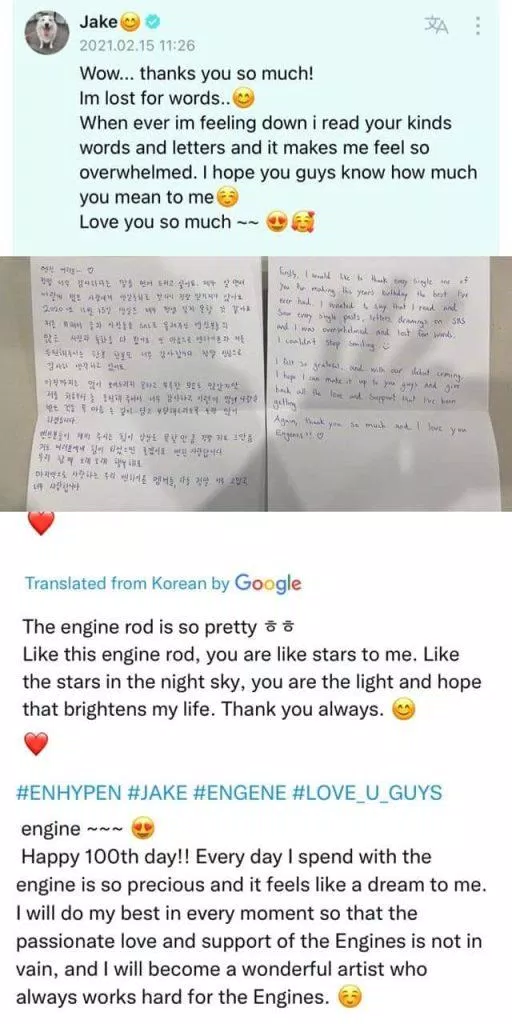 Jake😊
2021.02.15 11:26
Wow... thanks you so much!
Im lost for words..😊
When ever im feeling down i read your kinds
words and letters and it makes me feel so
overwhelmed. I hope you guys know how much
you mean to me☺️
Love you so much ~~ 😍🥰
정말 너무 감사하다는 말을 먼저 드리고 싶어요. 제가 살면서
이렇게 많은 사람에게
2020년 11월 15일 생일은 제가 평생 잊지 못할 것 같아요
너무 감사합니다 정말 진심으로
감사하게 생각하고 있어요.
우리 함께 오래 오래 행복해요
마지막으로 사랑하는 우리 멤버들, 다들 정말 너무 고맙고
너무 사랑합니다
Firstly, I would like to thank every single one of
you for making this years birthday the best I've
ever had. I wanted to say that I read and
saw every single posts, letters, drawings on SNS
and I was overwhelmed and lost for words.
I couldn't stop smiling
I felt so grateful, and with our debut coming
I hope I can make it up to you guys and give
back all the love and support that I've been
getting.
Again, thank you so much and I love you
Engenes!! ♡
❤️
Translated from Korean by Google
The engine rod is so pretty ㅎㅎ
Like this engine rod, you are like stars to me. Like
the stars in the night sky, you are the light and hope
that brightens my life. Thank you always. 😊
❤️
#ENHYPEN #JAKE #ENGENE #LOVE_U_GUYS
engine ~~~ 😍
Happy 100th day!! Every day I spend with the
engine is so precious and it feels like a dream to me.
I will do my best in every moment so that the
passionate love and support of the Engines is not in
vain, and I will become a wonderful artist who
always works hard for the Engines. ☺️